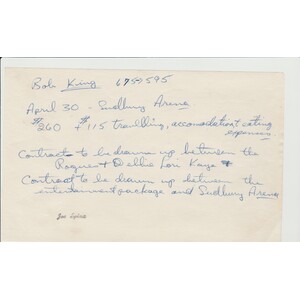 Bob King 6755595
April 30 - Sudbury Arena
$260 + $115 travelling, accomodation + eating
expenses
Contract to be drawn up between the
Rogues + Dallis Lori Kaye +
Contract to be drawn up between the
entertainment package and Sudbury Arena